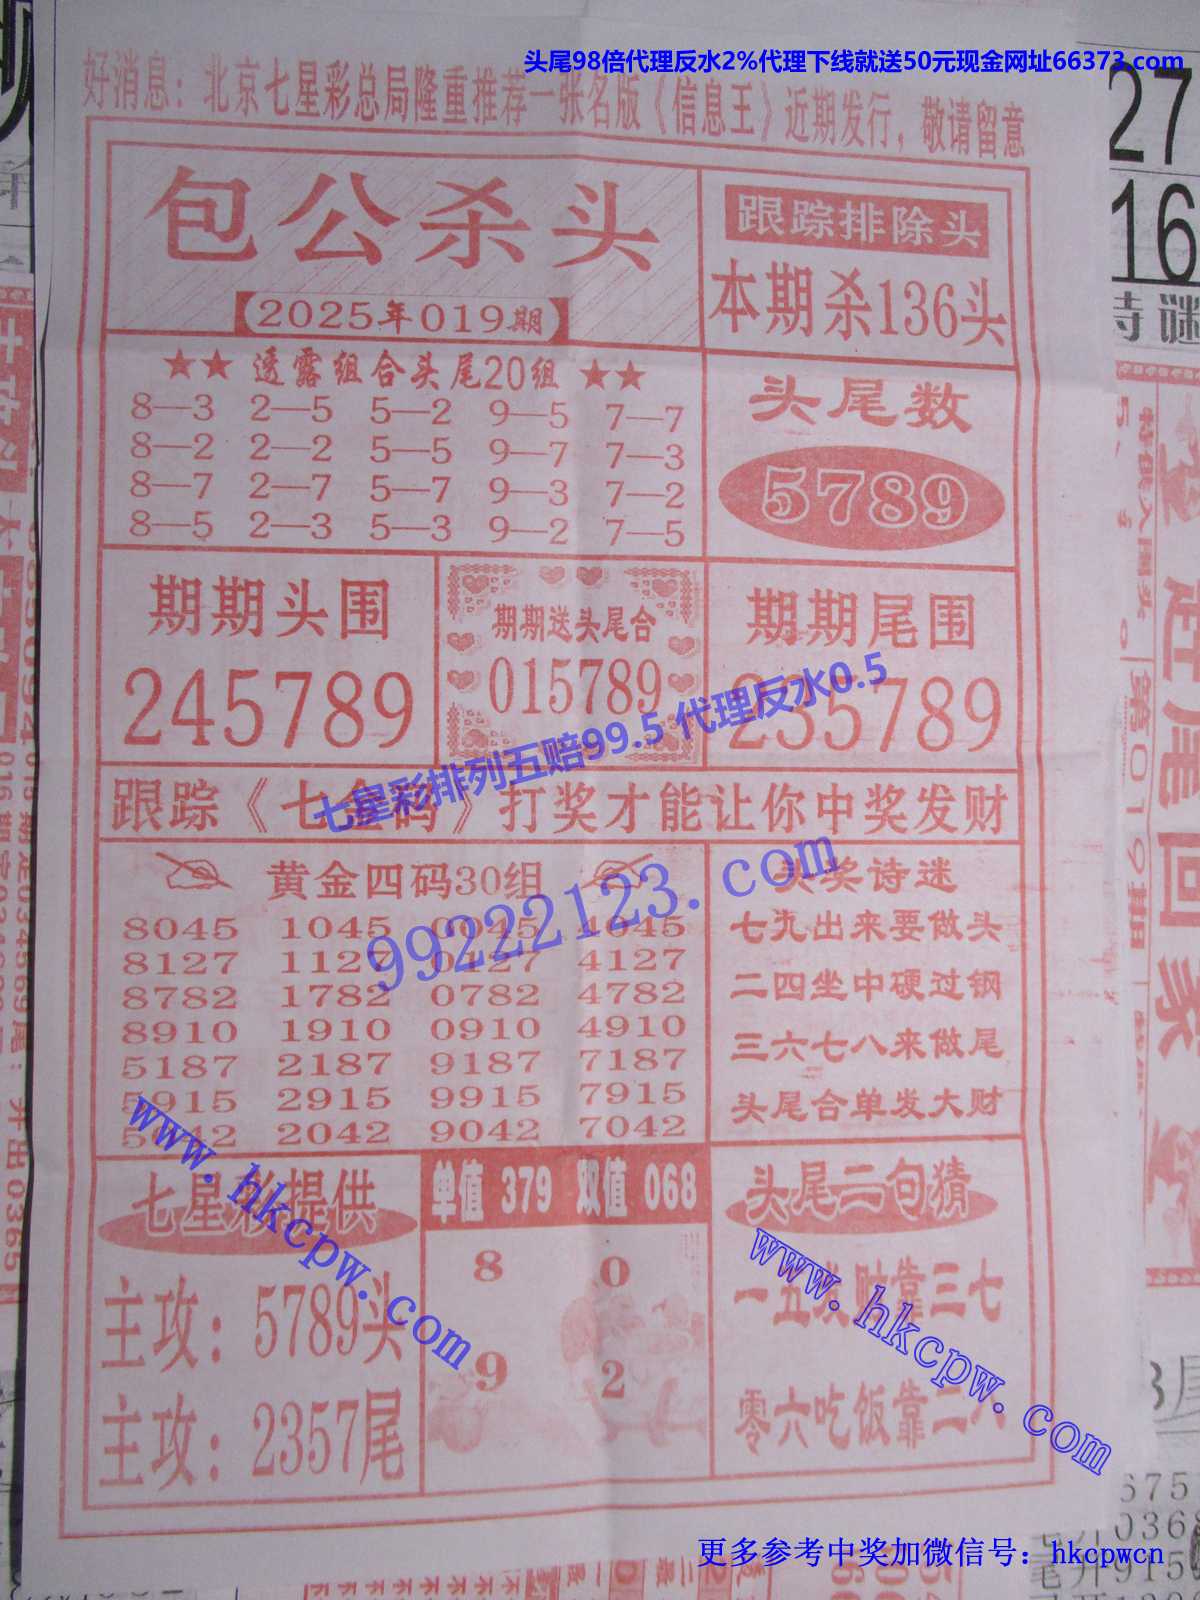 头尾98倍代理反水2%代理下线就送50元现金网址66373.com
好消息：北京七星彩总局隆重推荐一张名版《信息王》近期发行，敬请留意
包公杀头
【2025年019期】
跟踪排除头
本期杀136头
★★ 透露组合头尾20组 ★★
8—3 2—5 5—2 9—5 7—7
8—2 2—2 5—5 9—7 7—3
8—7 2—7 5—7 9—3 7—2
8—5 2—3 5—3 9—2 7—5
头尾数
5789
期期头围
245789
期期送头尾合
015789
期期尾围
235789
七星彩排列五赔99.5 代理反水0.5
跟踪《七金码》打奖才能让你中奖发财
99222123.com
黄金四码30组
8045 1045 0045 4045
8127 1127 0127 4127
8782 1782 0782 4782
8910 1910 0910 4910
5187 2187 9187 7187
5915 2915 9915 7915
5042 2042 9042 7042
头奖诗迷
七九出来要做头
二四坐中硬过钢
三六七八来做尾
头尾合单发大财
www.hkcpw.com
七星彩提供
主攻：5789头
主攻：2357尾
单值 379 双值 068
8 0
9 2
头尾二句猜
一五发财靠三七
零六吃饭靠二八
www.hkcpw.com
更多参考中奖加微信号：hkcpwcn
27
16
诗谜
第019期
赶尾回家